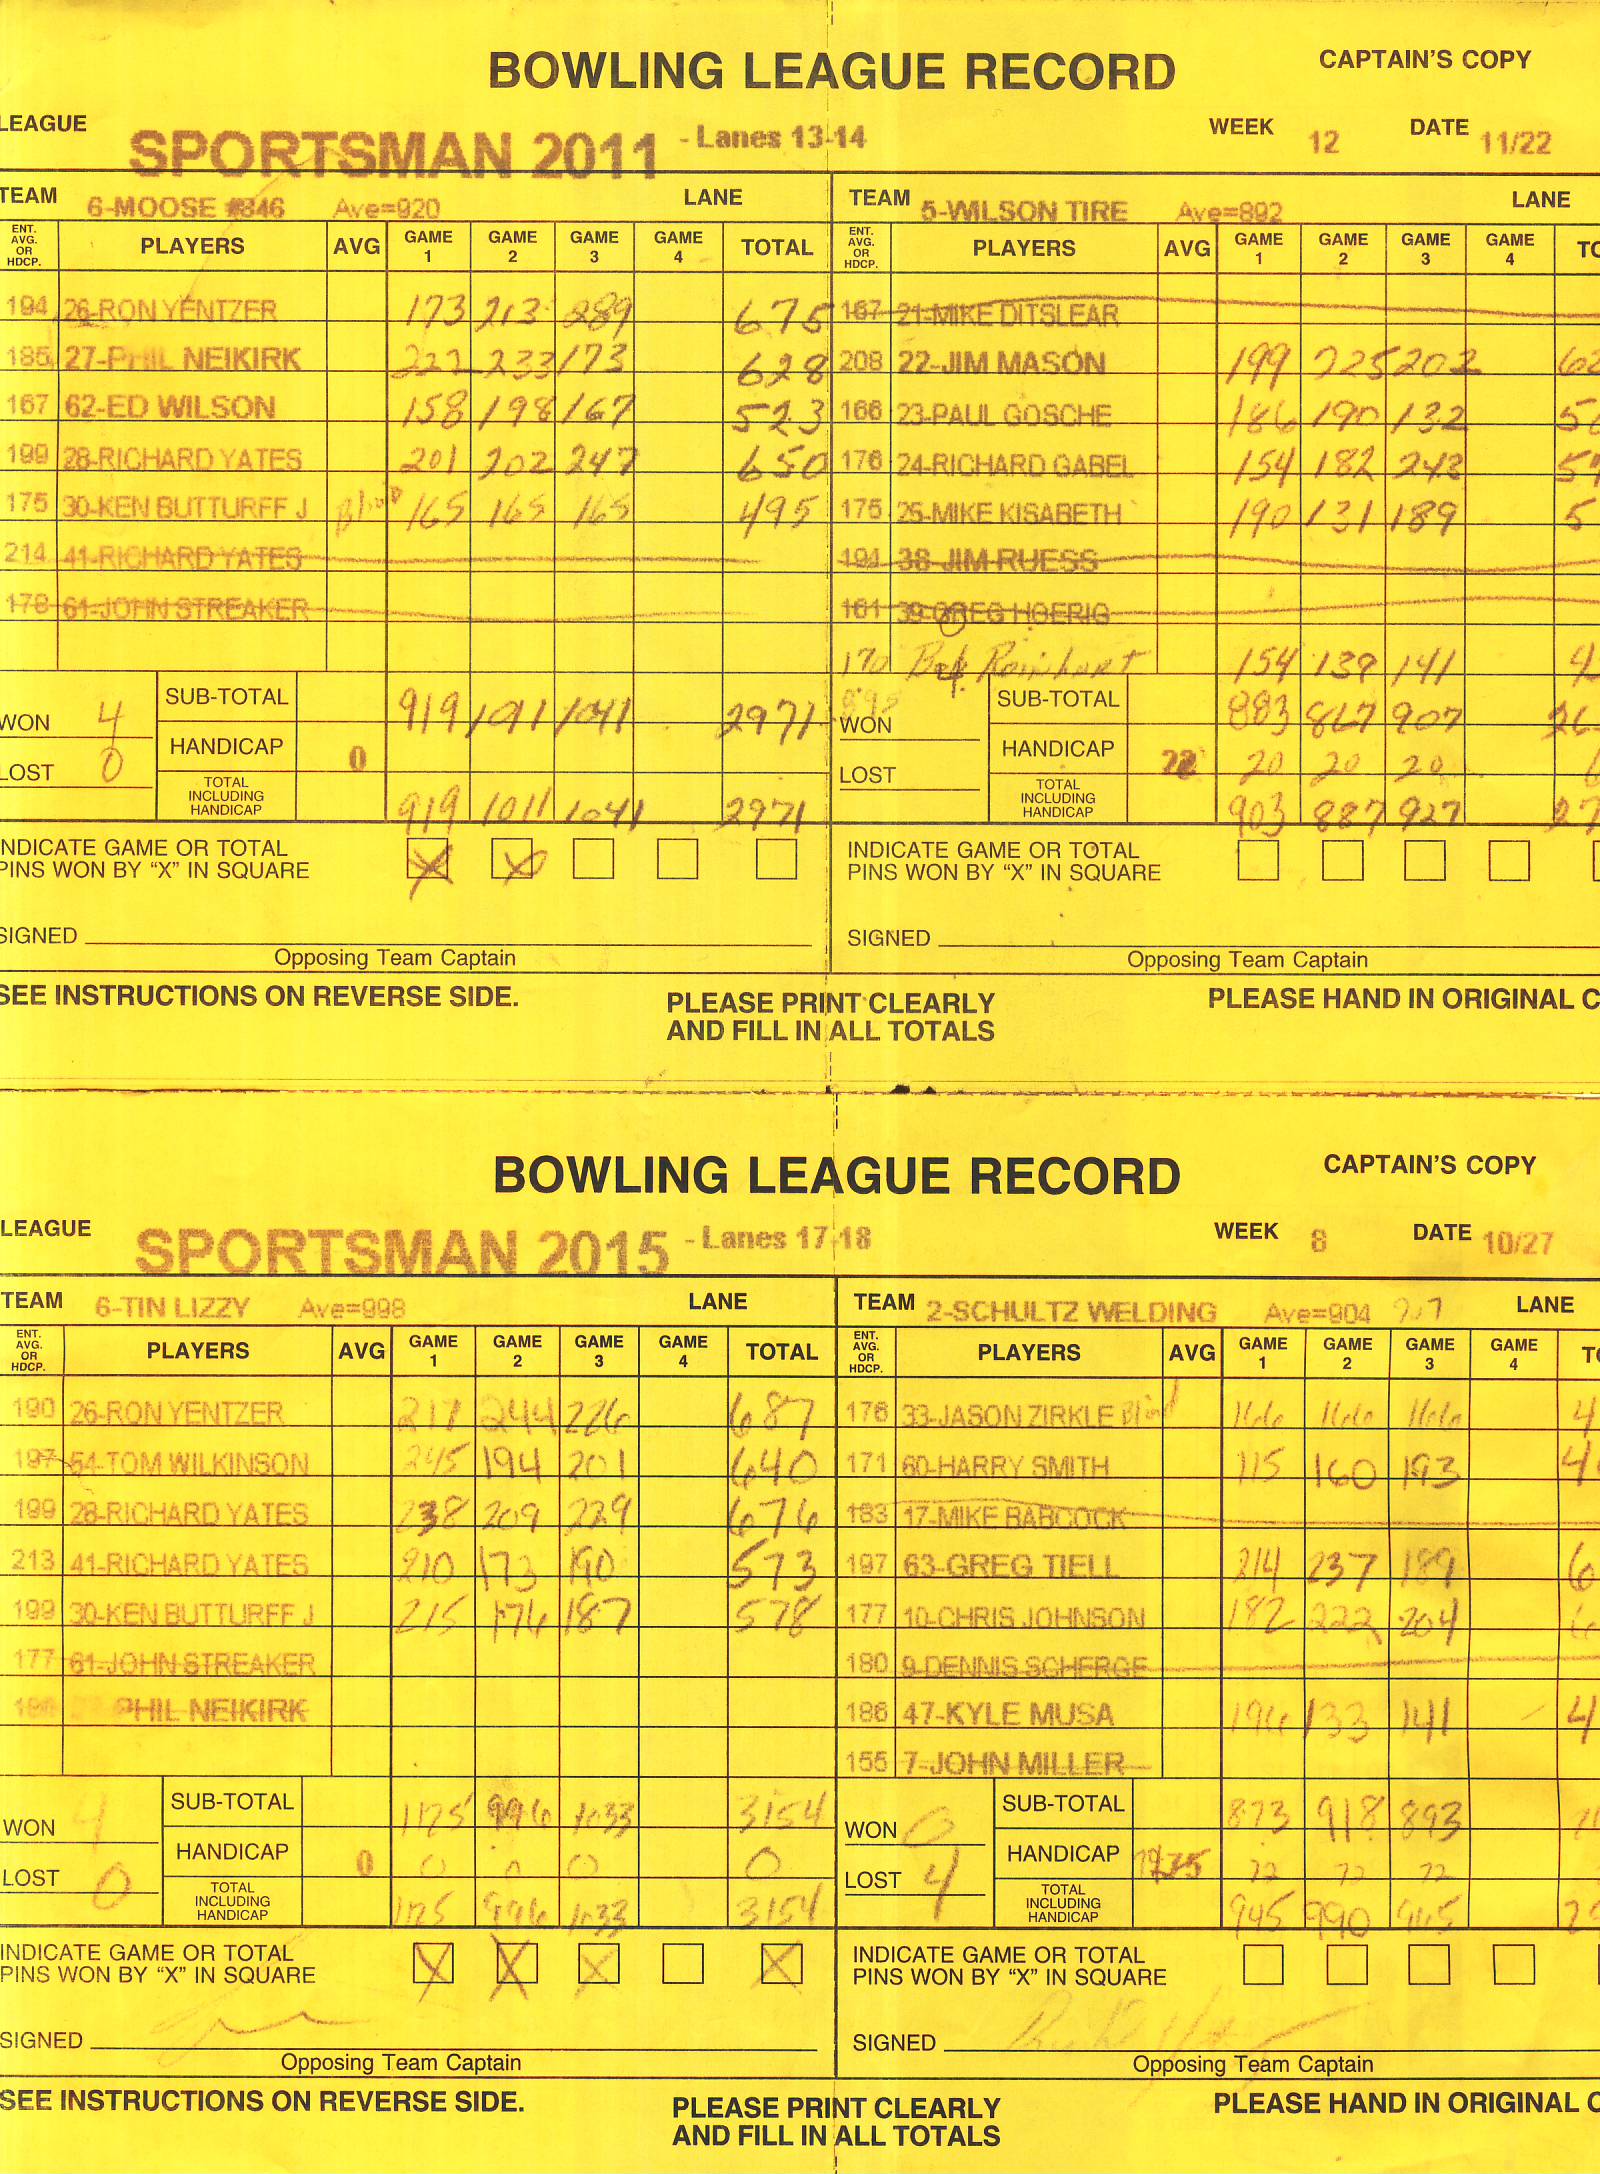 BOWLING LEAGUE RECORD CAPTAIN'S COPY
LEAGUE SPORTSMAN 2011 - Lanes 13-14 WEEK 12 DATE 11/22
TEAM 6-MOOSE #846 Ave=920 LANE TEAM 5-WILSON TIRE Ave=892 LANE
ENT. AVG. OR HDCP. PLAYERS AVG GAME 1 GAME 2 GAME 3 GAME 4 TOTAL ENT. AVG. OR HDCP. PLAYERS AVG GAME 1 GAME 2 GAME 3 GAME 4
194 26-RON YENTZER 173 213 289 675 167 21-MIKE DITSLEAR
185 27-PHIL NEIKIRK 222 233 173 628 208 22-JIM MASON 199 225 202
167 62-ED WILSON 158 198 167 523 166 23-PAUL GOSCHE 186 190 132
199 28-RICHARD YATES 201 202 247 650 176 24-RICHARD GABEL 154 182 243
175 30-KEN BUTTURFF J Blind 165 165 165 495 175 25-MIKE KISABETH 190 131 189
214 41-RICHARD YATES 194 38-JIM RUESS
178 61-JOHN STREAKER 161 39-GREG HOERIG
170 Bob Reinhart 154 139 141
WON 4 SUB-TOTAL 919 1011 1041 2971 895 WON SUB-TOTAL 883 867 907
LOST 0 HANDICAP 0 LOST HANDICAP 22 20 20 20
TOTAL INCLUDING HANDICAP 919 1011 1041 2971 TOTAL INCLUDING HANDICAP 903 887 927
INDICATE GAME OR TOTAL PINS WON BY "X" IN SQUARE X X INDICATE GAME OR TOTAL PINS WON BY "X" IN SQUARE
SIGNED SIGNED
Opposing Team Captain Opposing Team Captain
SEE INSTRUCTIONS ON REVERSE SIDE. PLEASE PRINT CLEARLY PLEASE HAND IN ORIGINAL C
AND FILL IN ALL TOTALS
BOWLING LEAGUE RECORD CAPTAIN'S COPY
LEAGUE SPORTSMAN 2015 - Lanes 17-18 WEEK 8 DATE 10/27
TEAM 6-TIN LIZZY Ave=998 LANE TEAM 2-SCHULTZ WELDING Ave=904 907 LANE
ENT. AVG. OR HDCP. PLAYERS AVG GAME 1 GAME 2 GAME 3 GAME 4 TOTAL ENT. AVG. OR HDCP. PLAYERS AVG GAME 1 GAME 2 GAME 3 GAME 4
190 26-RON YENTZER 217 244 226 687 176 33-JASON ZIRKLE Blind 166 166 166
197 54-TOM WILKINSON 245 194 201 640 171 60-HARRY SMITH 115 160 193
199 28-RICHARD YATES 238 209 229 676 183 17-MIKE BABCOCK
213 41-RICHARD YATES 210 173 190 573 197 63-GREG TIELL 214 237 189
199 30-KEN BUTTURFF J 215 176 187 578 177 10-CHRIS JOHNSON 182 222 204
177 61-JOHN STREAKER 180 9-DENNIS SCHERGE
PHIL NEIKIRK 186 47-KYLE MUSA 196 133 141
155 7-JOHN MILLER
WON 4 SUB-TOTAL 1125 996 1033 3154 WON 0 SUB-TOTAL 873 918 893
LOST 0 HANDICAP 0 0 0 0 0 LOST 4 HANDICAP 72 72 72
TOTAL INCLUDING HANDICAP 1125 996 1033 3154 TOTAL INCLUDING HANDICAP 945 990 965
INDICATE GAME OR TOTAL PINS WON BY "X" IN SQUARE X X X X INDICATE GAME OR TOTAL PINS WON BY "X" IN SQUARE
SIGNED SIGNED
Opposing Team Captain Opposing Team Captain
SEE INSTRUCTIONS ON REVERSE SIDE. PLEASE PRINT CLEARLY PLEASE HAND IN ORIGINAL C
AND FILL IN ALL TOTALS